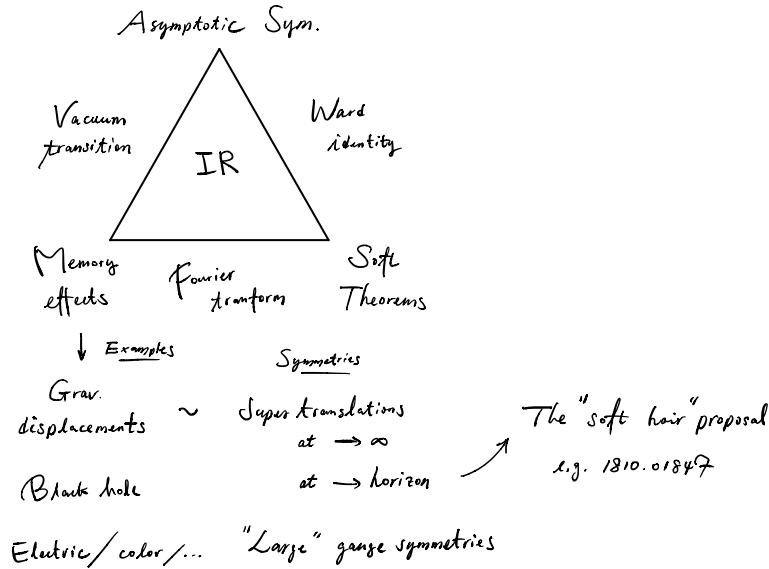 Asymptotic Sym.
Vacuum
transition
Ward
identity
IR
Memory
effects
Fourier
tranform
Soft
Theorems
↓ Examples
Symmetries
Grav.
displacements ~ Supertranslations
at → ∞
The "soft hair" proposal
e.g. 1810.01847
Black hole
at → horizon
Electric/color/... "Large" gauge symmetries